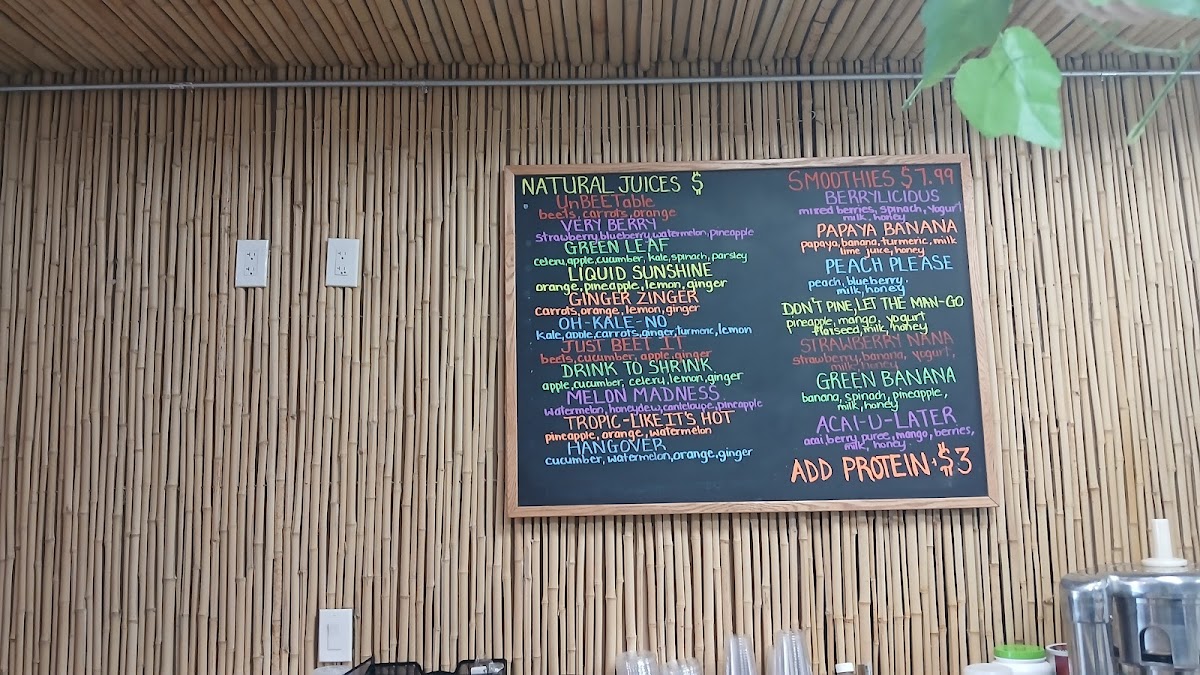 NATURAL JUICES $
UnBEETable
beets, carrots, orange
VERY BERRY
strawberry, blueberry, watermelon, pineapple
GREEN LEAF
celery, apple, cucumber, kale, spinach, parsley
LIQUID SUNSHINE
orange, pineapple, lemon, ginger
GINGER ZINGER
carrots, orange, lemon, ginger
OH-KALE-NO
kale, apple, carrots, ginger, turmeric, lemon
JUST BEET IT
beets, cucumber, apple, ginger
DRINK TO SHRINK
apple, cucumber, celery, lemon, ginger
MELON MADNESS
watermelon, honeydew, canteloupe, pineapple
TROPIC-LIKE IT'S HOT
pineapple, orange, watermelon
HANGOVER
cucumber, watermelon, orange, ginger
SMOOTHIES $7.99
BERRYLICIOUS
mixed berries, spinach, yogurt
milk, honey
PAPAYA BANANA
papaya, banana, turmeric, milk
lime juice, honey
PEACH PLEASE
peach, blueberry,
milk, honey
DON'T PINE, LET THE MAN-GO
pineapple, mango, yogurt
flaxseed, milk, honey
STRAWBERRY NANA
strawberry, banana, yogurt,
milk, honey
GREEN BANANA
banana, spinach, pineapple,
milk, honey
ACAI-U-LATER
acai, berry puree, mango, berries,
milk, honey
ADD PROTEIN + $3